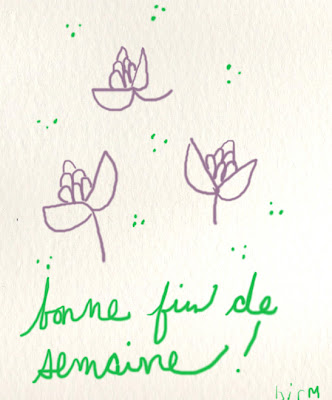 bonne fin de
semaine !